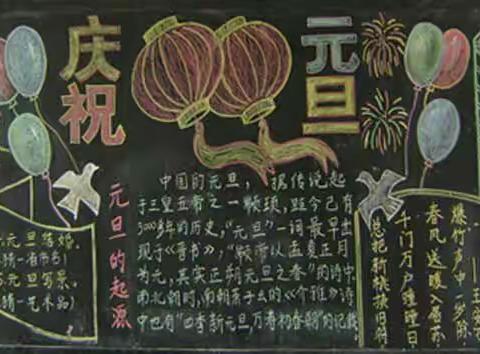 庆祝
元旦
元旦的起源
中国的元旦，据传说起
于三皇五帝之一颛顼，距今已有
3000多年的历史，“元旦”一词最早出
现于《晋书》，“颛帝以孟夏正月
为元，其实正朔元旦之春”的诗中
南北朝时，南朝萧子云的《介雅》诗
中也有“四季新元旦，万寿初春朝”的记载
爆竹声中一岁除，
春风送暖入屠苏，
千门万户曈曈日，
总把新桃换旧符
元旦结婚。
元旦写景。
猜一艺术品）